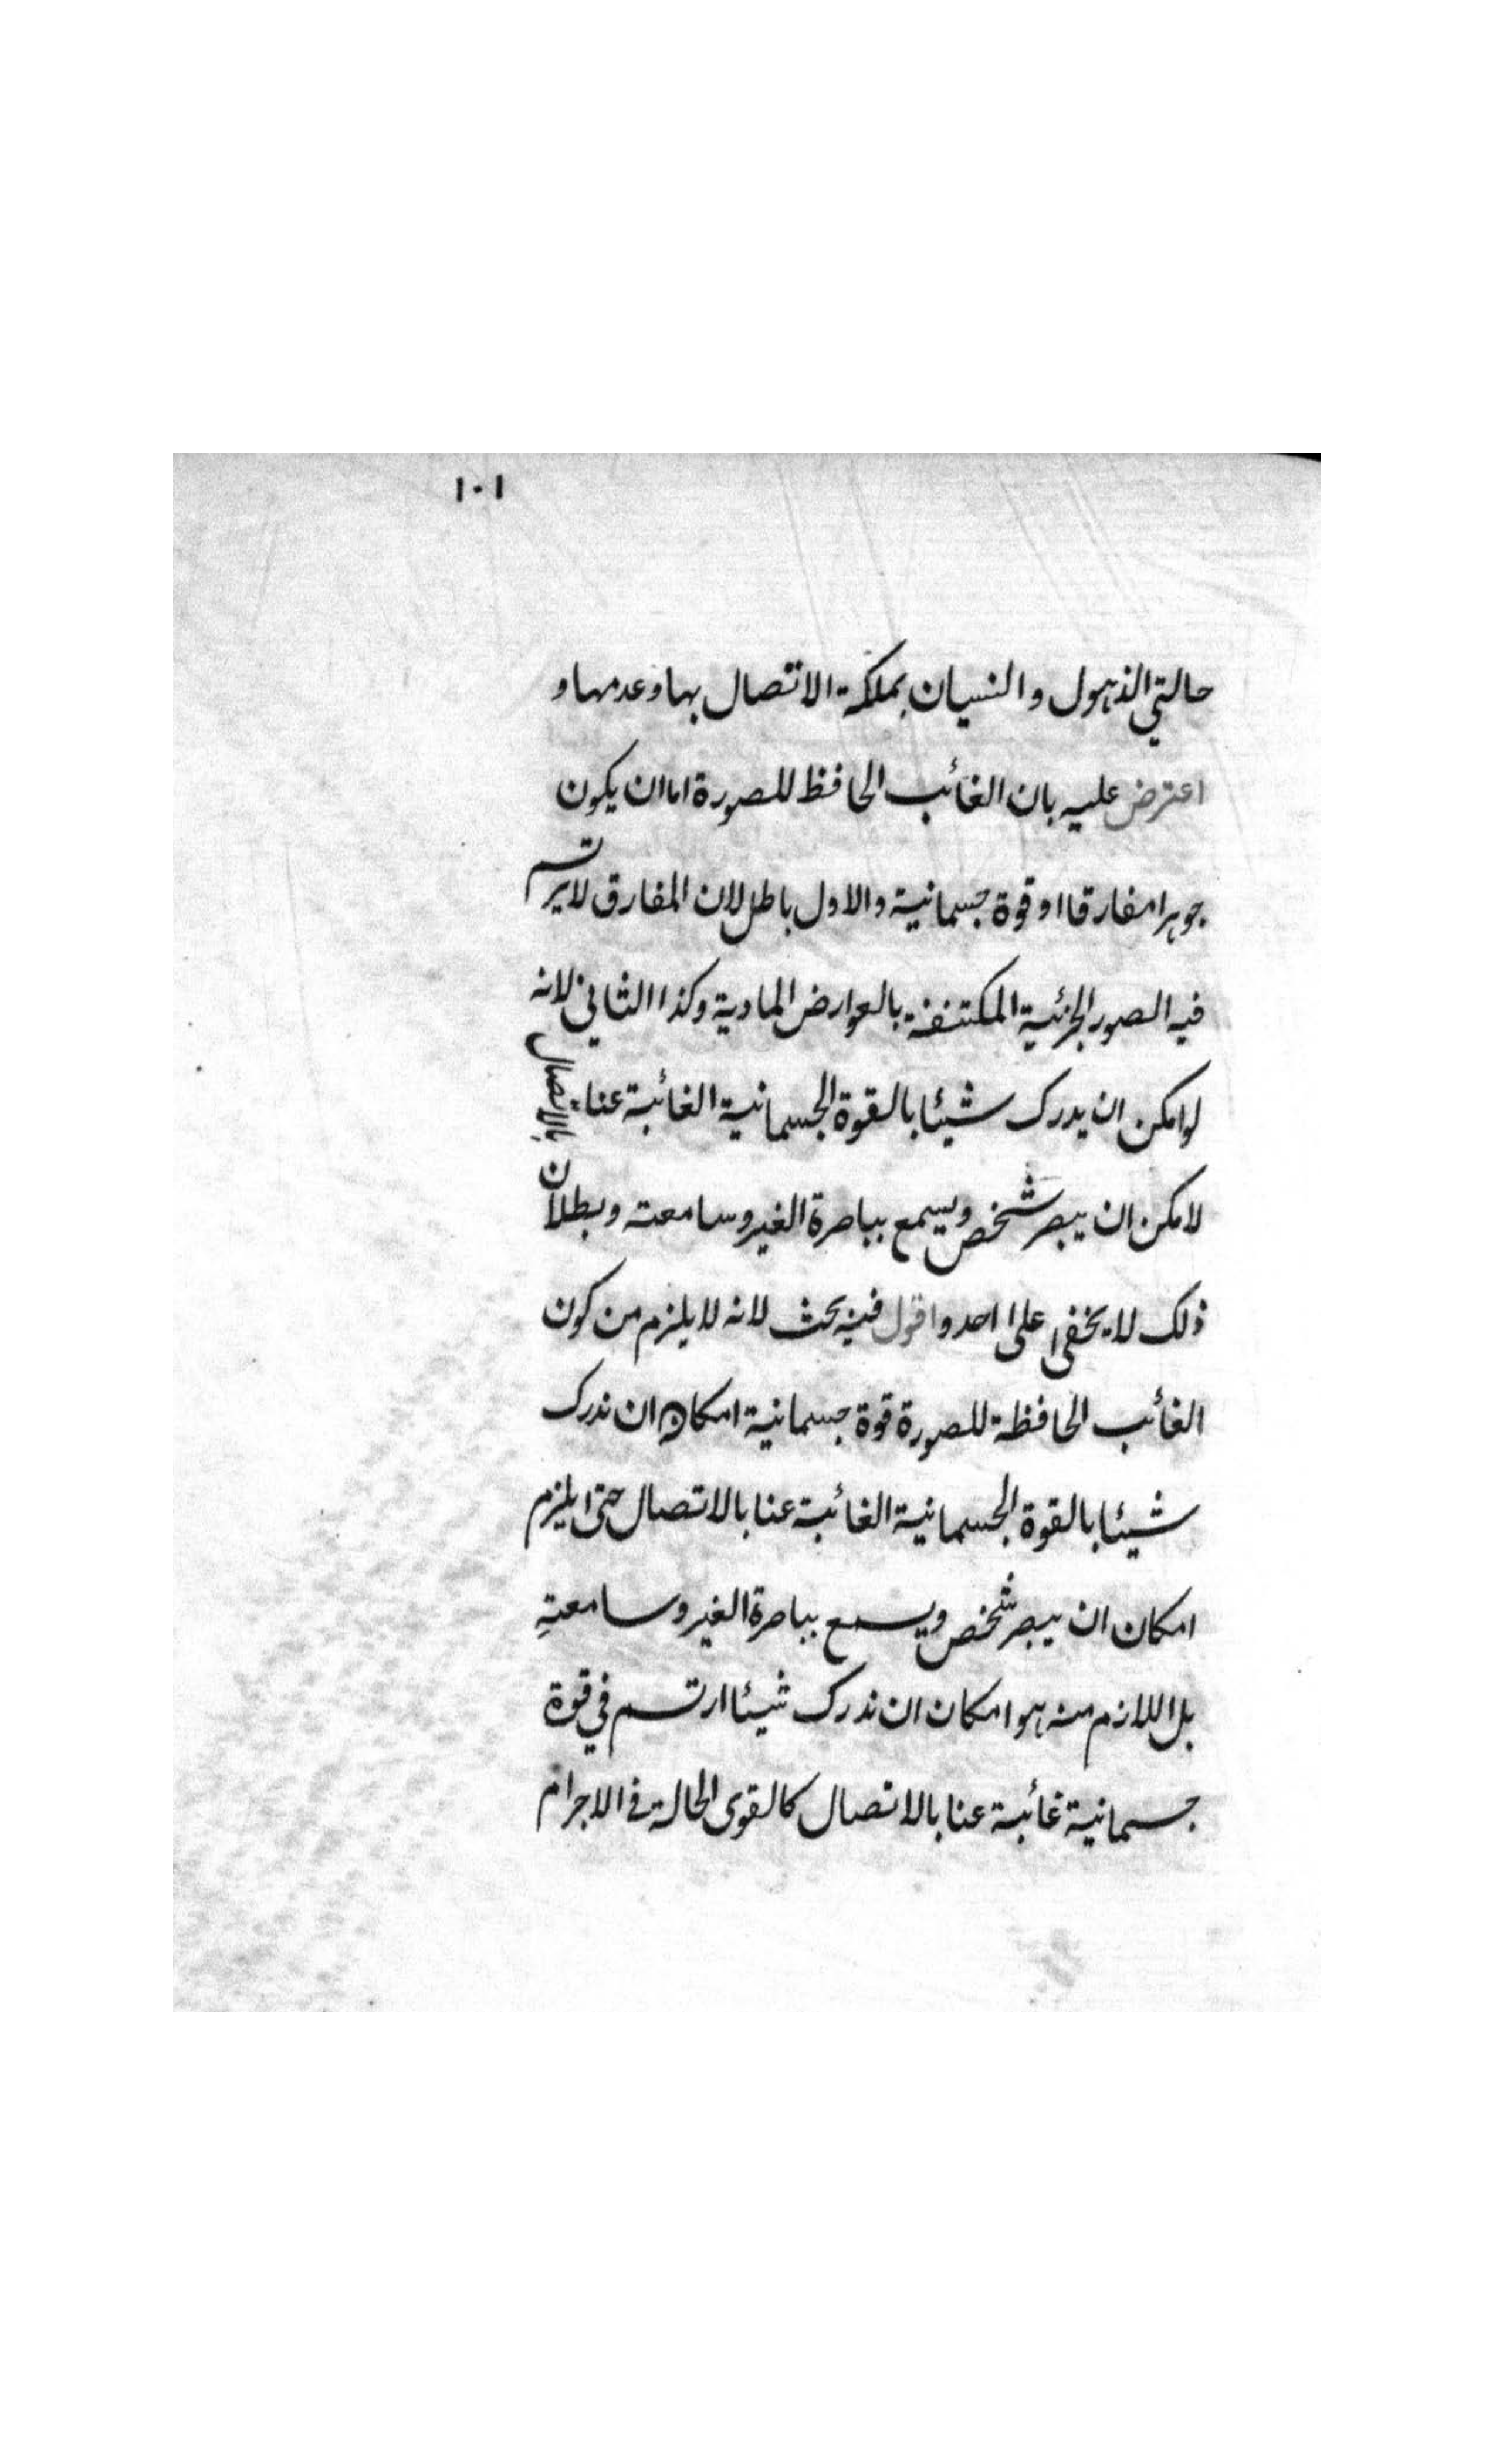 ١٠١
حالتي الذهول والنسيان بملكة الاتصال بها وعدمها و
اعترض عليه بان الغائب الحافظ للصورة اما ان يكون
جوهرا مفارقا او قوة جسمانية والاول باطل لان المفارق لا يرتسم
فيه الصور الجزئية المكتنفة بالعوارض المادية وكذا الثاني لانه
لو امكن ان يدرك شيئا بالقوة الجسمانية الغائبة عنا بالاتصال
لامكن ان يبصر شخص ويسمع بباصرة الغير وسامعته وبطلان
ذلك لا يخفى على احد واقول فيه بحث لانه لا يلزم من كون
الغائب الحافظة للصورة قوة جسمانية امكان ان ندرك
شيئا بالقوة الجسمانية الغائبة عنا بالاتصال حتى يلزم
امكان ان يبصر شخص ويسمع بباصرة الغير وسامعتهِ
بل اللازم منه هو امكان ان ندرك شيئا ارتسم في قوة
جسمانية غائبة عنا بالاتصال كالقوى الحالة في الاجرام